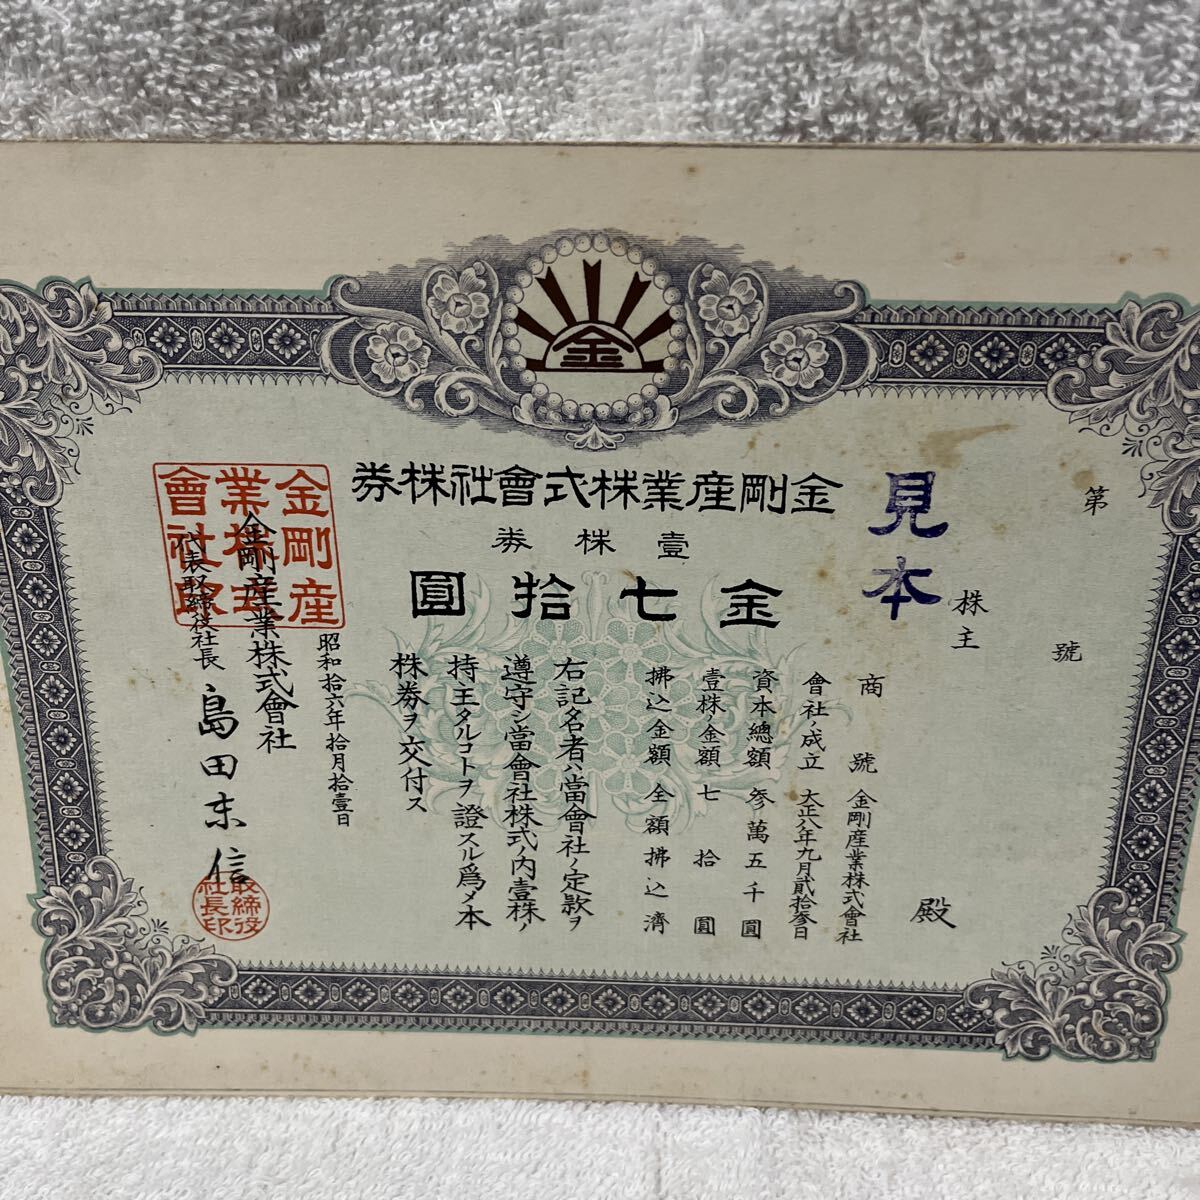 金
第　號
株主　殿
見本
金剛産業株式會社株券
壹株券
金七拾圓
商號　金剛産業株式會社
會社ノ成立　大正八年九月貳拾参日
資本總額　参萬五千圓
壹株ノ金額　七拾圓
拂込金額　全額拂込濟
右記名者ハ當會社ノ定款ヲ
遵守シ當會社株式ノ内壹株ノ
持主タルコトヲ證スル爲メ本
株券ヲ交付ス
昭和拾六年拾月拾壹日
金剛産業株式會社
代表取締役社長　島田末信
金剛産
業株式
會社印
取締役
社長印